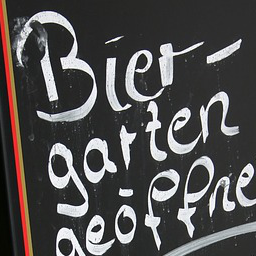 Bier-
garten
geöffne